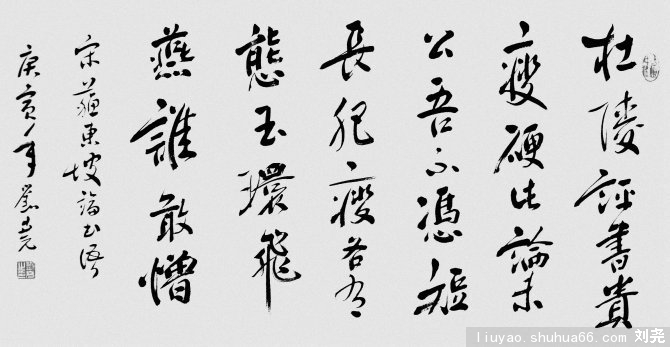 杜陵評書貴
瘦硬此論未
公吾不憑短
長肥瘦各有
態玉環飛
燕誰敢憎
宋蘇東坡論書語
庚寅年劉堯
liuyao.shuhua66.com 刘尧